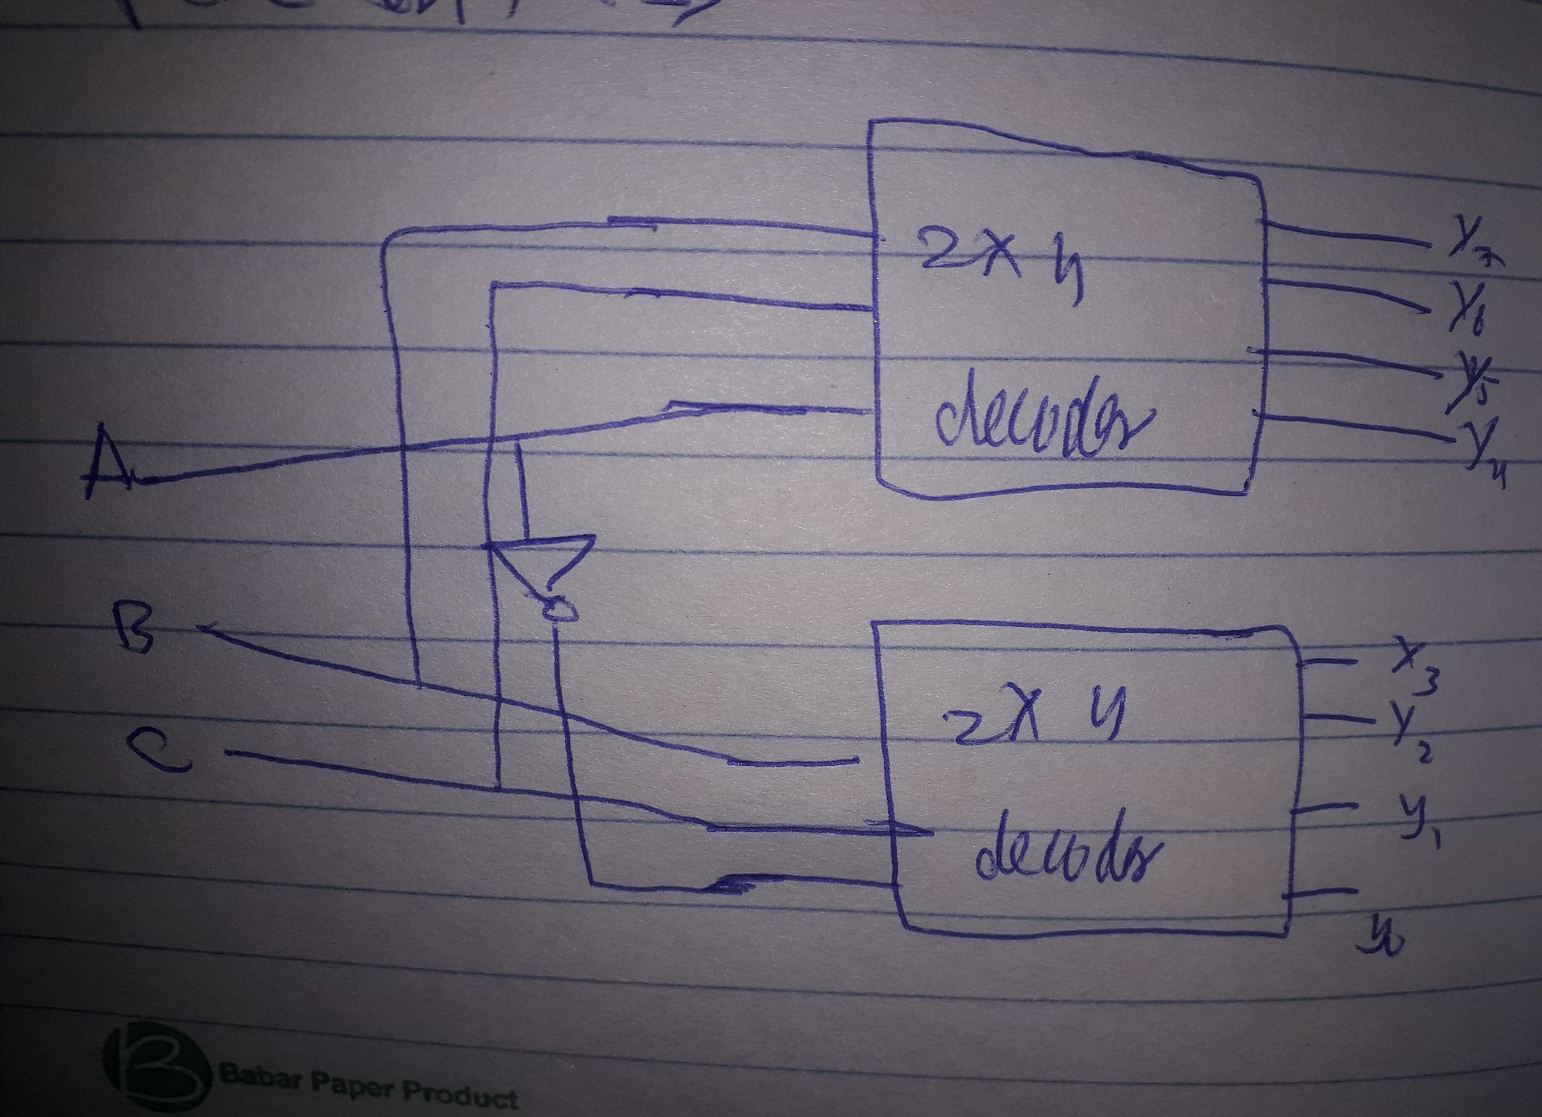 2x4
decoder
Y7
Y6
Y5
Y4
A
B
C
2x4
decoder
Y3
Y2
Y1
Y0
B
Babar Paper Product